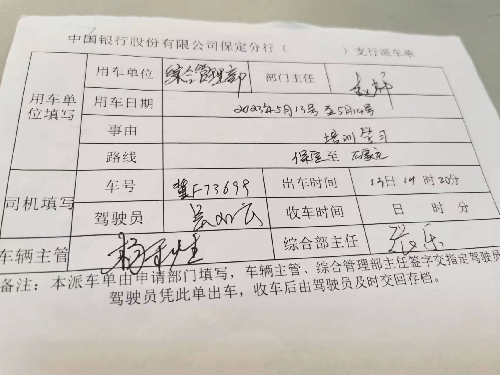 中国银行股份有限公司保定分行（ ）支行派车单
用车单位填写 用车单位 综合管理部 部门主任
用车日期 2023年5月13号至5月14号
事由 培训学习
路线 保定至石家庄
司机填写 车号 冀F73699 出车时间 13日19时20分
驾驶员 收车时间 日 时 分
车辆主管 综合部主任
备注：本派车单由申请部门填写，车辆主管、综合管理部主任签字交指定驾驶员
驾驶员凭此单出车，收车后由驾驶员及时交回存档。